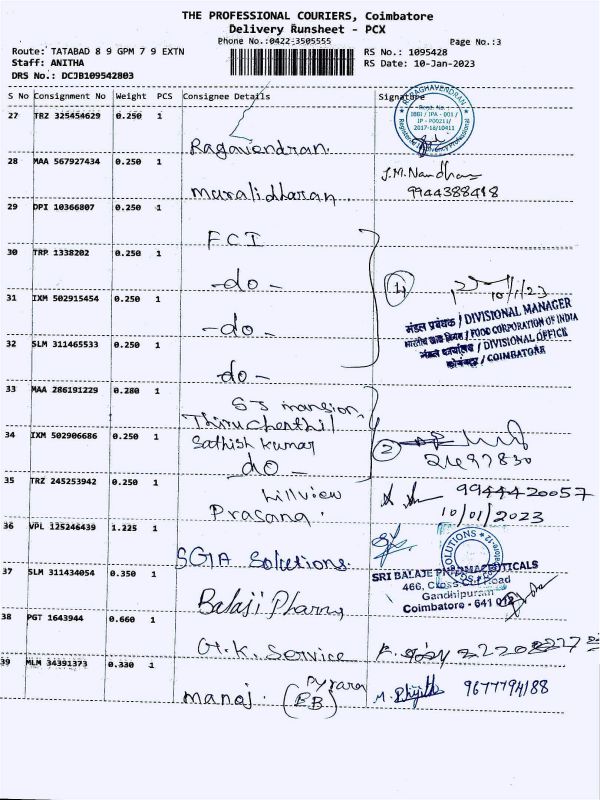 THE PROFESSIONAL COURIERS, Coimbatore
Delivery Runsheet - PCX
Phone No.:0422-3505555
Page No.:3
Route: TATABAD 8 9 GPM 7 9 EXTN
RS No.: 1095428
Staff: ANITHA
RS Date: 10-Jan-2023
DRS No.: DCJB109542803
S No Consignment No Weight PCS Consignee Details Signature
27 TRZ 325454629 0.250 1
Ragavendran.
28 MAA 567927434 0.250 1
J.M. Nandhan
muralidharan.
9944388418
29 DPI 10366807 0.250 1
FCI
30 TRP 1338202 0.250 1
-do-
4
10/1/23
31 IXM 502915454 0.250 1
-do-
मंडल प्रबंधक / DIVISIONAL MANAGER
भारतीय खाद्य निगम / FOOD CORPORATION OF INDIA
मंडल कार्यालय / DIVISIONAL OFFICE
कोयंबटूर / COIMBATORE
32 SLM 311465533 0.250 1
-do-
33 MAA 286191229 0.280 1
SS mansion,
Thiruchenthil
34 IXM 502906686 0.250 1
Sathish kumar
-do-
2
35 TRZ 245253942 0.250 1
hillview
9944420057
Prasana.
10/01/2023
36 VPL 125246439 1.225 1
SGIA Solutions.
SOLUTIONS
37 SLM 311434054 0.350 1
SRI BALAJE PHARMACEUTICALS
466, Cross Cut Road
Gandhipuram
Coimbatore - 641 012
Balaji Pharma
38 PGT 1643944 0.660 1
G.K. Service
39 MLM 34391373 0.330 1
manoj. (EB)
9677794188